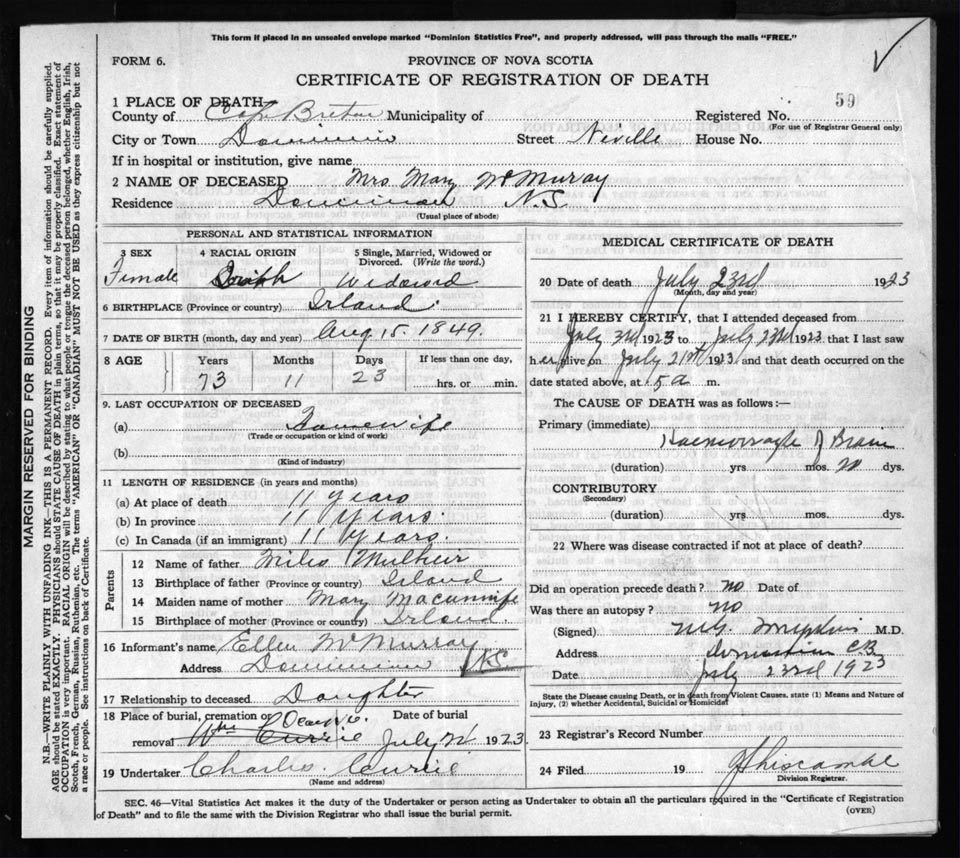 This form if placed in an unsealed envelope marked "Dominion Statistics Free", and properly addressed, will pass through the mails "FREE."
FORM 6.
PROVINCE OF NOVA SCOTIA
CERTIFICATE OF REGISTRATION OF DEATH
59
1 PLACE OF DEATH
County of Cape Breton Municipality of
Registered No.
(For use of Registrar General only)
City or Town Dominion Street Neville House No.
If in hospital or institution, give name
2 NAME OF DECEASED Mrs. Mary McMuray
Residence Dominion N.S.
(Usual place of abode)
PERSONAL AND STATISTICAL INFORMATION
3 SEX Female
4 RACIAL ORIGIN
5 Single, Married, Widowed or Divorced. (Write the word.) Widowed
6 BIRTHPLACE (Province or country) Irland
7 DATE OF BIRTH (month, day and year) Aug 15. 1849.
8 AGE Years Months Days If less than one day,
73 11 23 hrs. or min.
9. LAST OCCUPATION OF DECEASED
(a) Housewife
(Trade or occupation or kind of work)
(b)
(Kind of industry)
11 LENGTH OF RESIDENCE (in years and months)
(a) At place of death 11 years
(b) In province 11 years.
(c) In Canada (if an immigrant) 11 years.
Parents
12 Name of father Miles
13 Birthplace of father (Province or country) Irland
14 Maiden name of mother Mary
15 Birthplace of mother (Province or country) Irland.
16 Informant's name Ellen McMurray
Address Dominion NS
17 Relationship to deceased Daughter
18 Place of burial, cremation or Date of burial
removal July 1923.
19 Undertaker Charles. Currie
(Name and address)
MEDICAL CERTIFICATE OF DEATH
20 Date of death July 23rd 1923
(Month, day and year)
21 I HEREBY CERTIFY, that I attended deceased from
July 1923 to July 1923 that I last saw
her alive on July 21 1923 and that death occurred on
date stated above, at 5 a m.
The CAUSE OF DEATH was as follows:—
Primary (immediate)
Haemorrhage of Brain
(duration) yrs. mos. dys.
CONTRIBUTORY
(Secondary)
(duration) yrs. mos. dys.
22 Where was disease contracted if not at place of death?
Did an operation precede death? no Date of
Was there an autopsy? no
(Signed) M.D.
Address Dominion CB
Date July 23rd 1923
State the Disease causing Death, or in death from Violent Causes, state (1) Means and Nature of
Injury, (2) whether Accidental, Suicidal or Homicidal
23 Registrar's Record Number
24 Filed 19
Division Registrar.
SEC. 46—Vital Statistics Act makes it the duty of the Undertaker or person acting as Undertaker to obtain all the particulars required in the "Certificate of Registration
of Death" and to file the same with the Division Registrar who shall issue the burial permit.
(OVER)
MARGIN RESERVED FOR BINDING
N.B.—WRITE PLAINLY WITH UNFADING INK—THIS IS A PERMANENT RECORD. Every item of information should be carefully supplied.
AGE should be stated EXACTLY. PHYSICIANS should STATE CAUSE OF DEATH in plain terms, so that it may be properly classified. Exact statement of
OCCUPATION is very important. RACIAL ORIGIN will be described by stating to what people or tongue the deceased person belonged, whether English, Irish,
Scotch, French, German, Russian, Ruthenian, etc. The terms "AMERICAN" or "CANADIAN" MUST NOT BE USED as they express citizenship but not
a race or people. See instructions on back of Certificate.